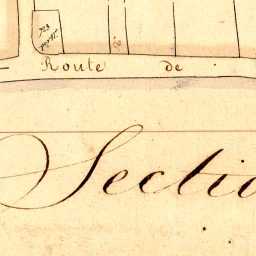 Route de
Sectio